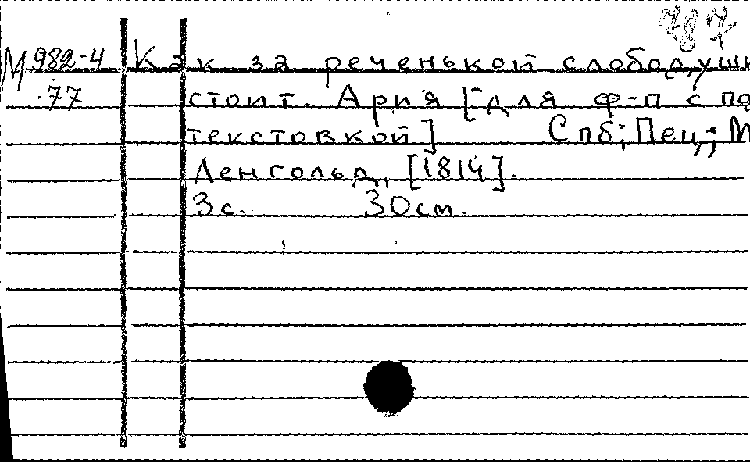 787
М 982-4 Как за реченькой слободуш
77 стоит. Ария [для ф-п с по
текстовкой] Спб; Пец; М
Ленгольд, [1814].
3с. 30см.